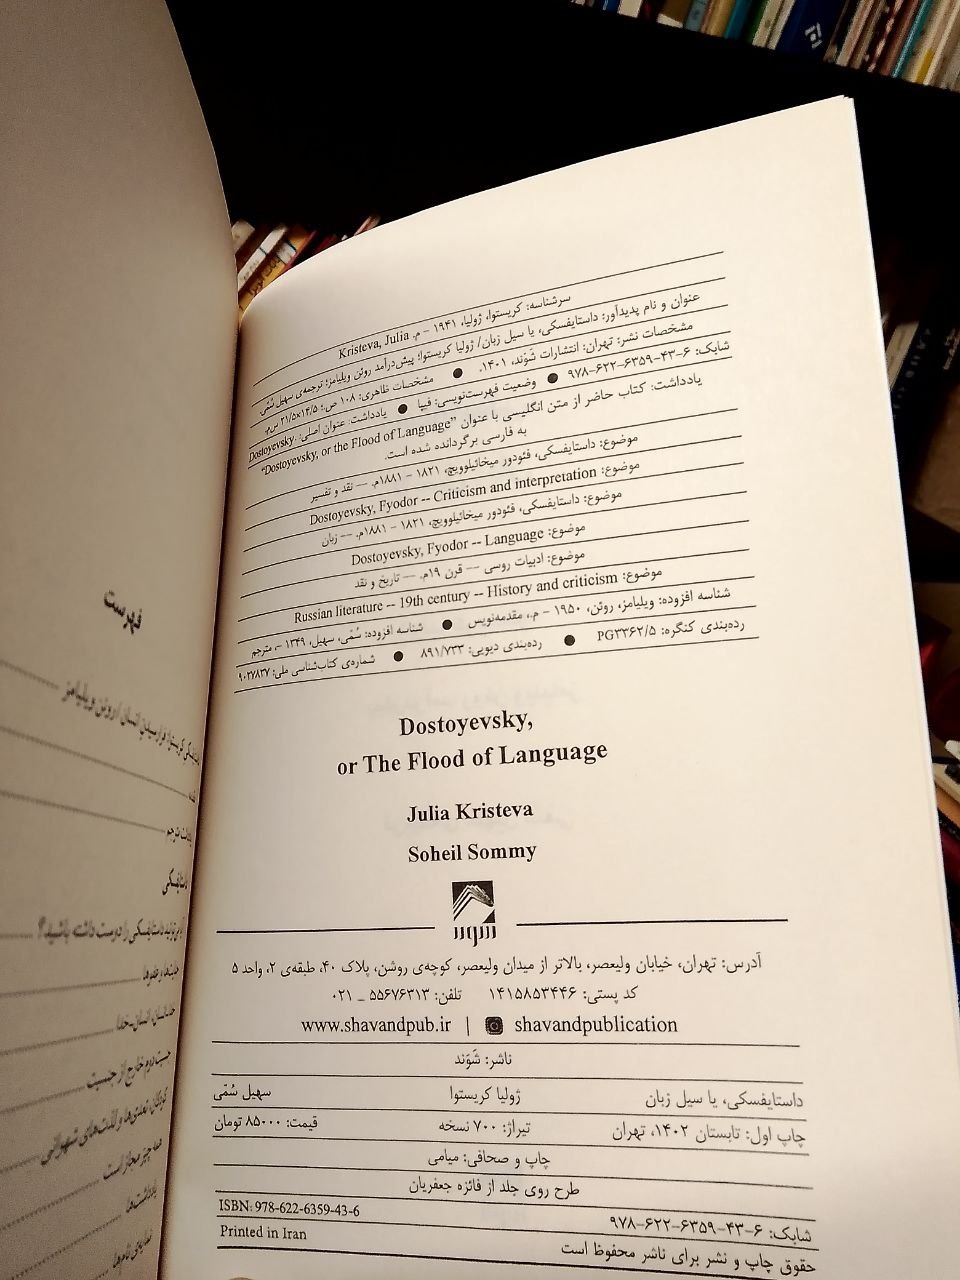 سرشناسه: کریستوا، ژولیا، ۱۹۴۱ – م. Kristeva, Julia
عنوان و نام پدیدآور: داستایفسکی، یا سیل زبان/ ژولیا کریستوا؛ پیش‌درآمد روئن ویلیامز؛ ترجمه‌ی سهیل سُمّی.
مشخصات نشر: تهران: انتشارات شَوَند، ۱۴۰۱. ● مشخصات ظاهری: ۱۰۸ ص.؛ ۱۴/۵×۲۱/۵ س‌م.
شابک: ۶-۴۳-۶۳۵۹-۶۲۲-۹۷۸ ● وضعیت فهرست‌نویسی: فیپا ● یادداشت: عنوان اصلی: Dostoyevsky.
یادداشت: کتاب حاضر از متن انگلیسی با عنوان "Dostoyevsky, or the Flood of Language"
به فارسی برگردانده شده است.
موضوع: داستایفسکی، فئودور میخائیلوویچ، ۱۸۲۱ – ۱۸۸۱م. — نقد و تفسیر
موضوع: Dostoyevsky, Fyodor -- Criticism and interpretation
موضوع: داستایفسکی، فئودور میخائیلوویچ، ۱۸۲۱ – ۱۸۸۱م. -- زبان
موضوع: Dostoyevsky, Fyodor -- Language
موضوع: ادبیات روسی — قرن ۱۹م. — تاریخ و نقد
موضوع: Russian literature -- 19th century -- History and criticism
شناسه افزوده: ویلیامز، روئن، ۱۹۵۰ – م.، مقدمه‌نویس ● شناسه افزوده: سُمّی، سهیل، ۱۳۴۹ -، مترجم
رده‌بندی کنگره: PG۳۳۶۲/۵ ● رده‌بندی دیویی: ۸۹۱/۷۳۳ ● شماره‌ی کتاب‌شناسی ملی: ۹۰۲۷۸۳۷
Dostoyevsky,
or The Flood of Language
Julia Kristeva
Soheil Sommy
شوند
آدرس: تهران، خیابان ولیعصر، بالاتر از میدان ولیعصر، کوچه‌ی روشن، پلاک ۴۰، طبقه‌ی ۲، واحد ۵
کد پستی: ۱۴۱۵۸۵۳۴۴۶ تلفن: ۵۵۶۷۶۳۱۳ _ ۰۲۱
www.shavandpub.ir | shavandpublication
ناشر: شَوَند
داستایفسکی، یا سیل زبان ژولیا کریستوا سهیل سُمّی
چاپ اول: تابستان ۱۴۰۲، تهران تیراژ: ۷۰۰ نسخه قیمت: ۸۵۰۰۰ تومان
چاپ و صحافی: میامی
طرح روی جلد از فائزه جعفریان
شابک: ۶-۴۳-۶۳۵۹-۶۲۲-۹۷۸ ISBN: 978-622-6359-43-6
حقوق چاپ و نشر برای ناشر محفوظ است Printed in Iran
فهرست
کریستوا: فرارسیدنِ انسان / روئن ویلیامز
مترجم
داستایفسکی
داستایفسکی را دوست داشته باشید؟
جنسیت دوم خارج از جنسیت
همه چیز مجاز است
یادداشت‌ها